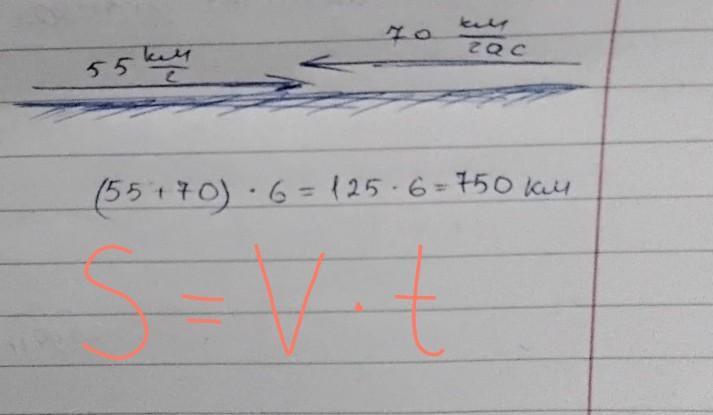 70 км/час
55 км/г
(55+70) · 6 = 125 · 6 = 750 км
S = V · t